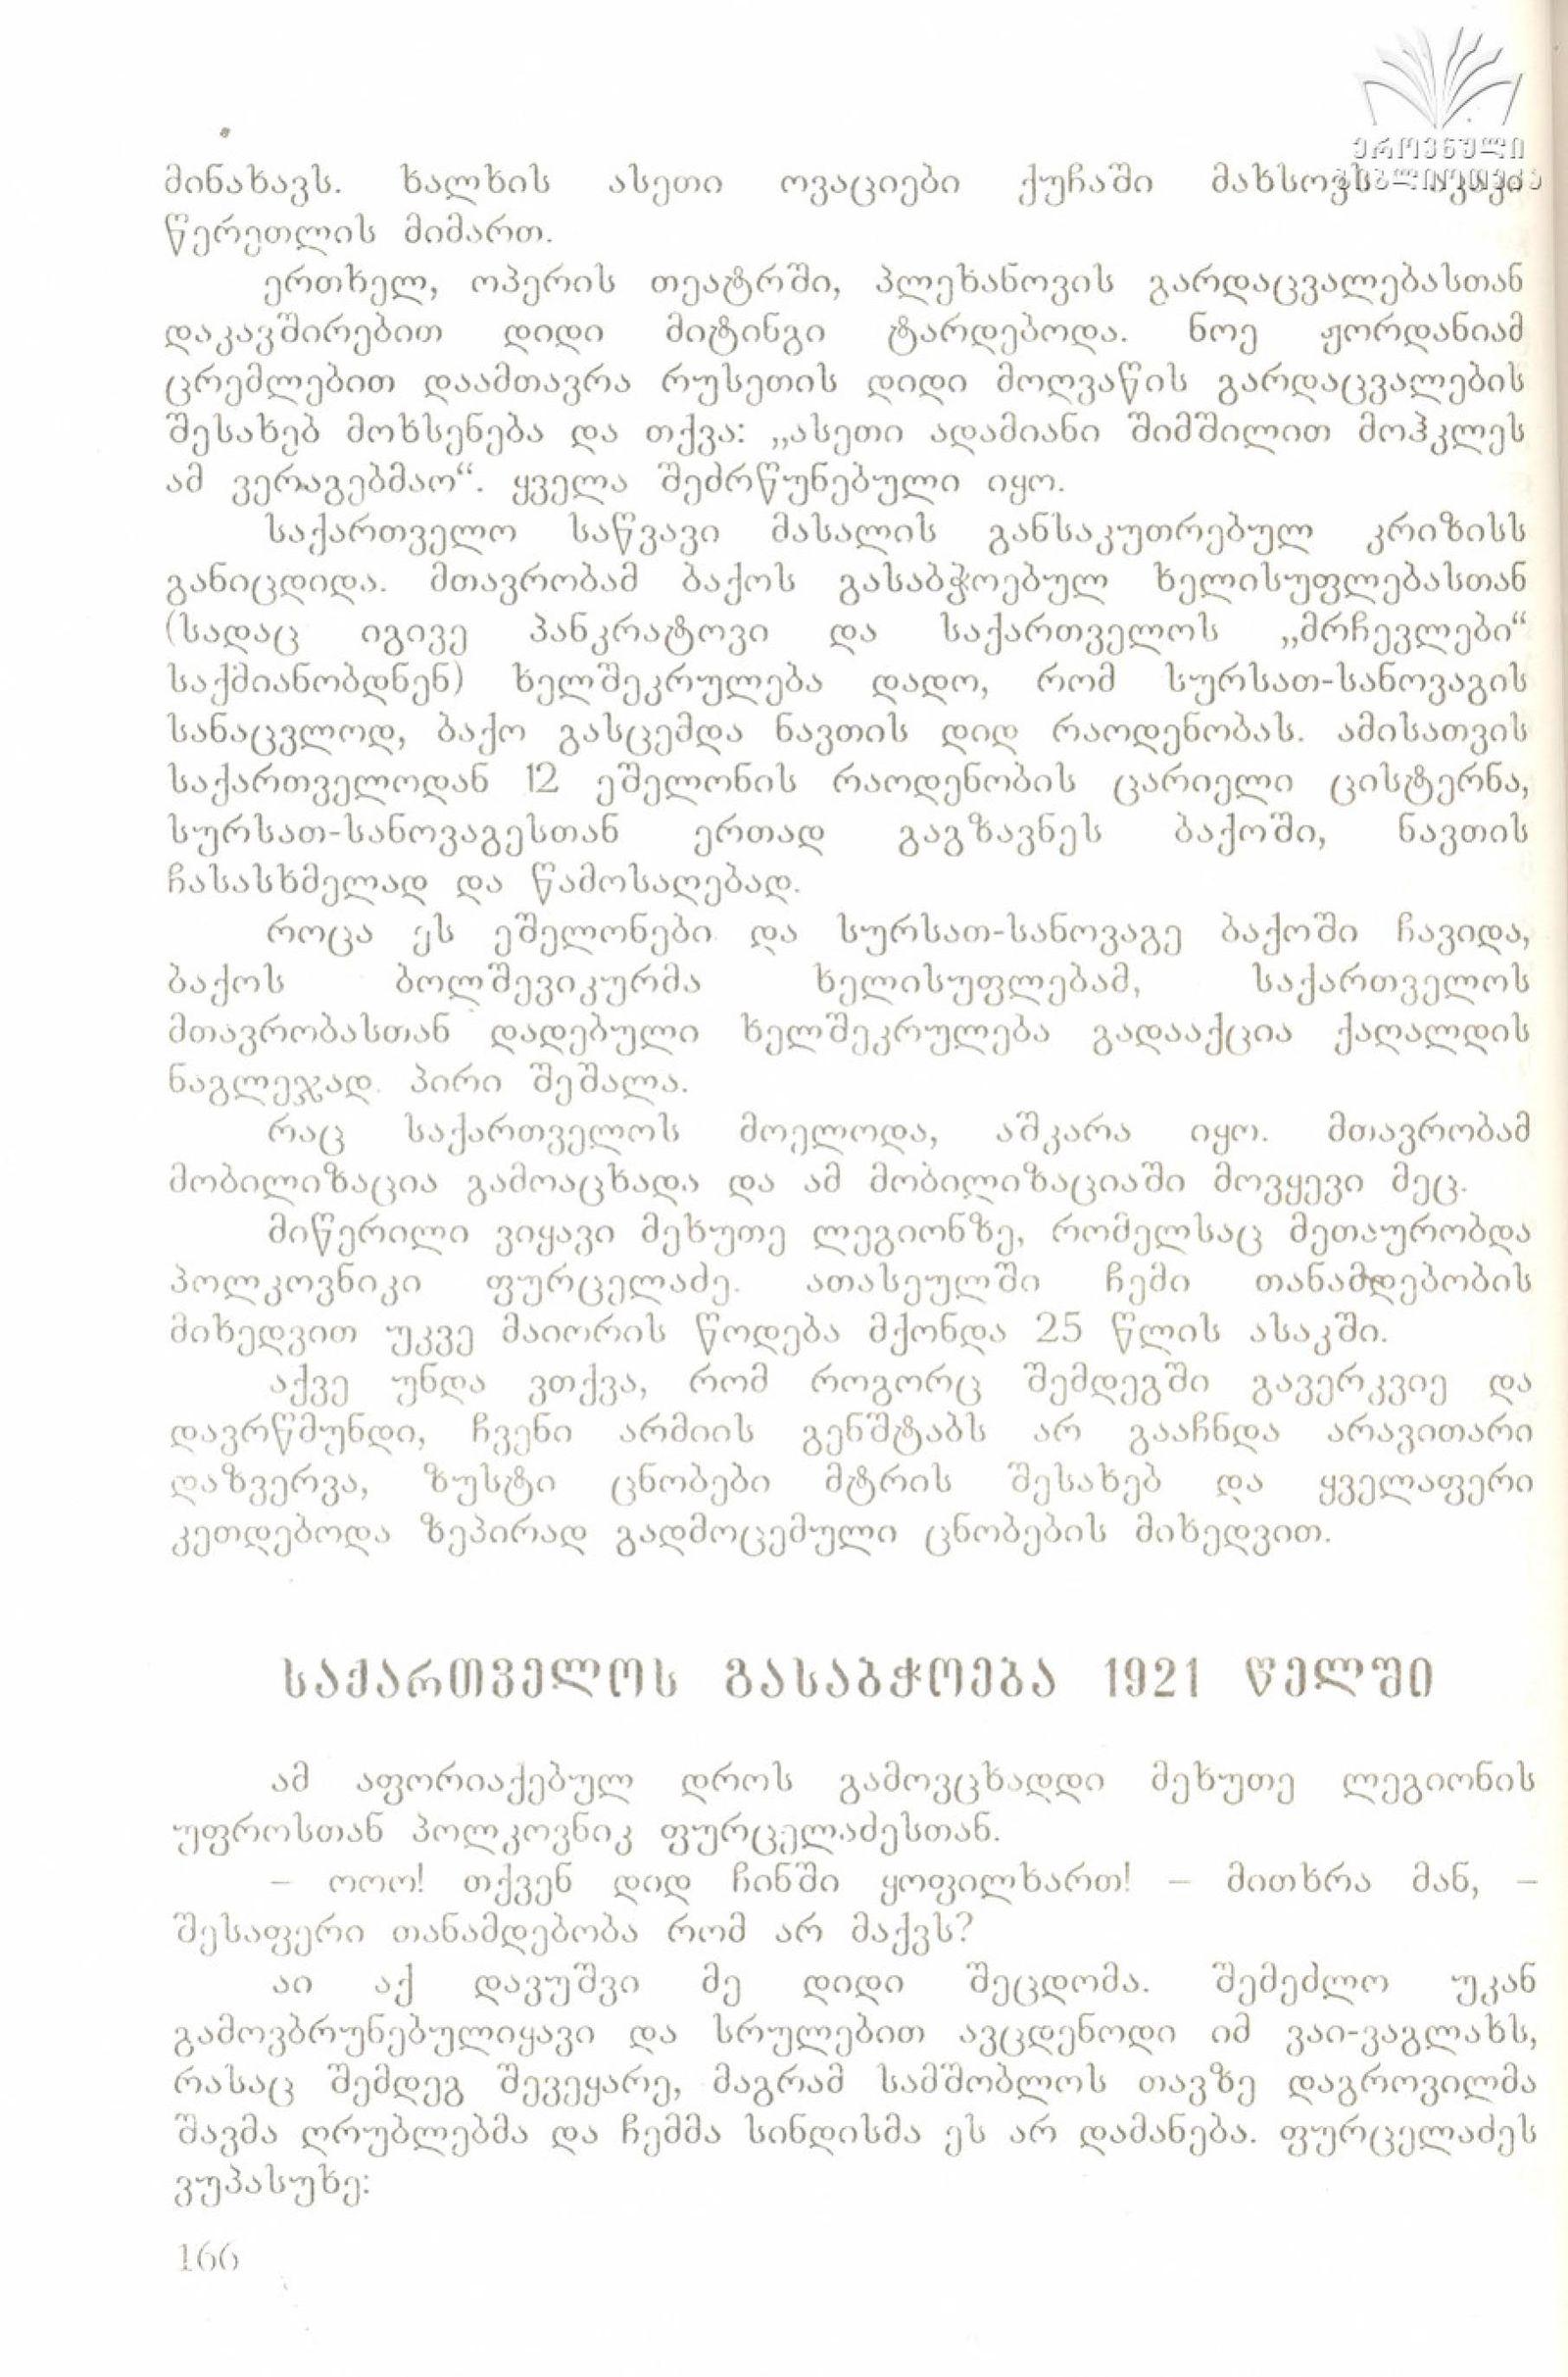 ეროვნული
ბიბლიოთეკა
მინახავს. ხალხის ასეთი ოვაციები ქუჩაში მახსოვს აკაკი
წერეთლის მიმართ.
ერთხელ, ოპერის თეატრში, პლეხანოვის გარდაცვალებასთან
დაკავშირებით დიდი მიტინგი ტარდებოდა. ნოე ჟორდანიამ
ცრემლებით დაამთავრა რუსეთის დიდი მოღვაწის გარდაცვალების
შესახებ მოხსენება და თქვა: „ასეთი ადამიანი შიმშილით მოჰკლეს
ამ ვერაგებმაო“. ყველა შეძრწუნებული იყო.
საქართველო საწვავი მასალის განსაკუთრებულ კრიზისს
განიცდიდა. მთავრობამ ბაქოს გასაბჭოებულ ხელისუფლებასთან
(სადაც იგივე პანკრატოვი და საქართველოს „მრჩევლები“
საქმიანობდნენ) ხელშეკრულება დადო, რომ სურსათ-სანოვაგის
სანაცვლოდ, ბაქო გასცემდა ნავთის დიდ რაოდენობას. ამისათვის
საქართველოდან 12 ეშელონის რაოდენობის ცარიელი ცისტერნა,
სურსათ-სანოვაგესთან ერთად გაგზავნეს ბაქოში, ნავთის
ჩასასხმელად და წამოსაღებად.
როცა ეს ეშელონები და სურსათ-სანოვაგე ბაქოში ჩავიდა,
ბაქოს ბოლშევიკურმა ხელისუფლებამ, საქართველოს
მთავრობასთან დადებული ხელშეკრულება გადააქცია ქაღალდის
ნაგლეჯად. პირი შეშალა.
რაც საქართველოს მოელოდა, აშკარა იყო. მთავრობამ
მობილიზაცია გამოაცხადა და ამ მობილიზაციაში მოვყევი მეც.
მიწერილი ვიყავი მეხუთე ლეგიონზე, რომელსაც მეთაურობდა
პოლკოვნიკი ფურცელაძე. ათასეულში ჩემი თანამდებობის
მიხედვით უკვე მაიორის წოდება მქონდა 25 წლის ასაკში.
აქვე უნდა ვთქვა, რომ როგორც შემდეგში გავერკვიე და
დავრწმუნდი, ჩვენი არმიის გენშტაბს არ გააჩნდა არავითარი
დაზვერვა, ზუსტი ცნობები მტრის შესახებ და ყველაფერი
კეთდებოდა ზეპირად გადმოცემული ცნობების მიხედვით.
საქართველოს გასაბჭოება 1921 წელში
ამ აფორიაქებულ დროს გამოვცხადდი მეხუთე ლეგიონის
უფროსთან პოლკოვნიკ ფურცელაძესთან.
– ოოო! თქვენ დიდ ჩინში ყოფილხართ! – მითხრა მან, –
შესაფერი თანამდებობა რომ არ მაქვს?
აი აქ დავუშვი მე დიდი შეცდომა. შემეძლო უკან
გამოვბრუნებულიყავი და სრულებით ავცდენოდი იმ ვაი-ვაგლახს,
რასაც შემდეგ შევეყარე, მაგრამ სამშობლოს თავზე დაგროვილმა
შავმა ღრუბლებმა და ჩემმა სინდისმა ეს არ დამანება. ფურცელაძეს
ვუპასუხე:
166